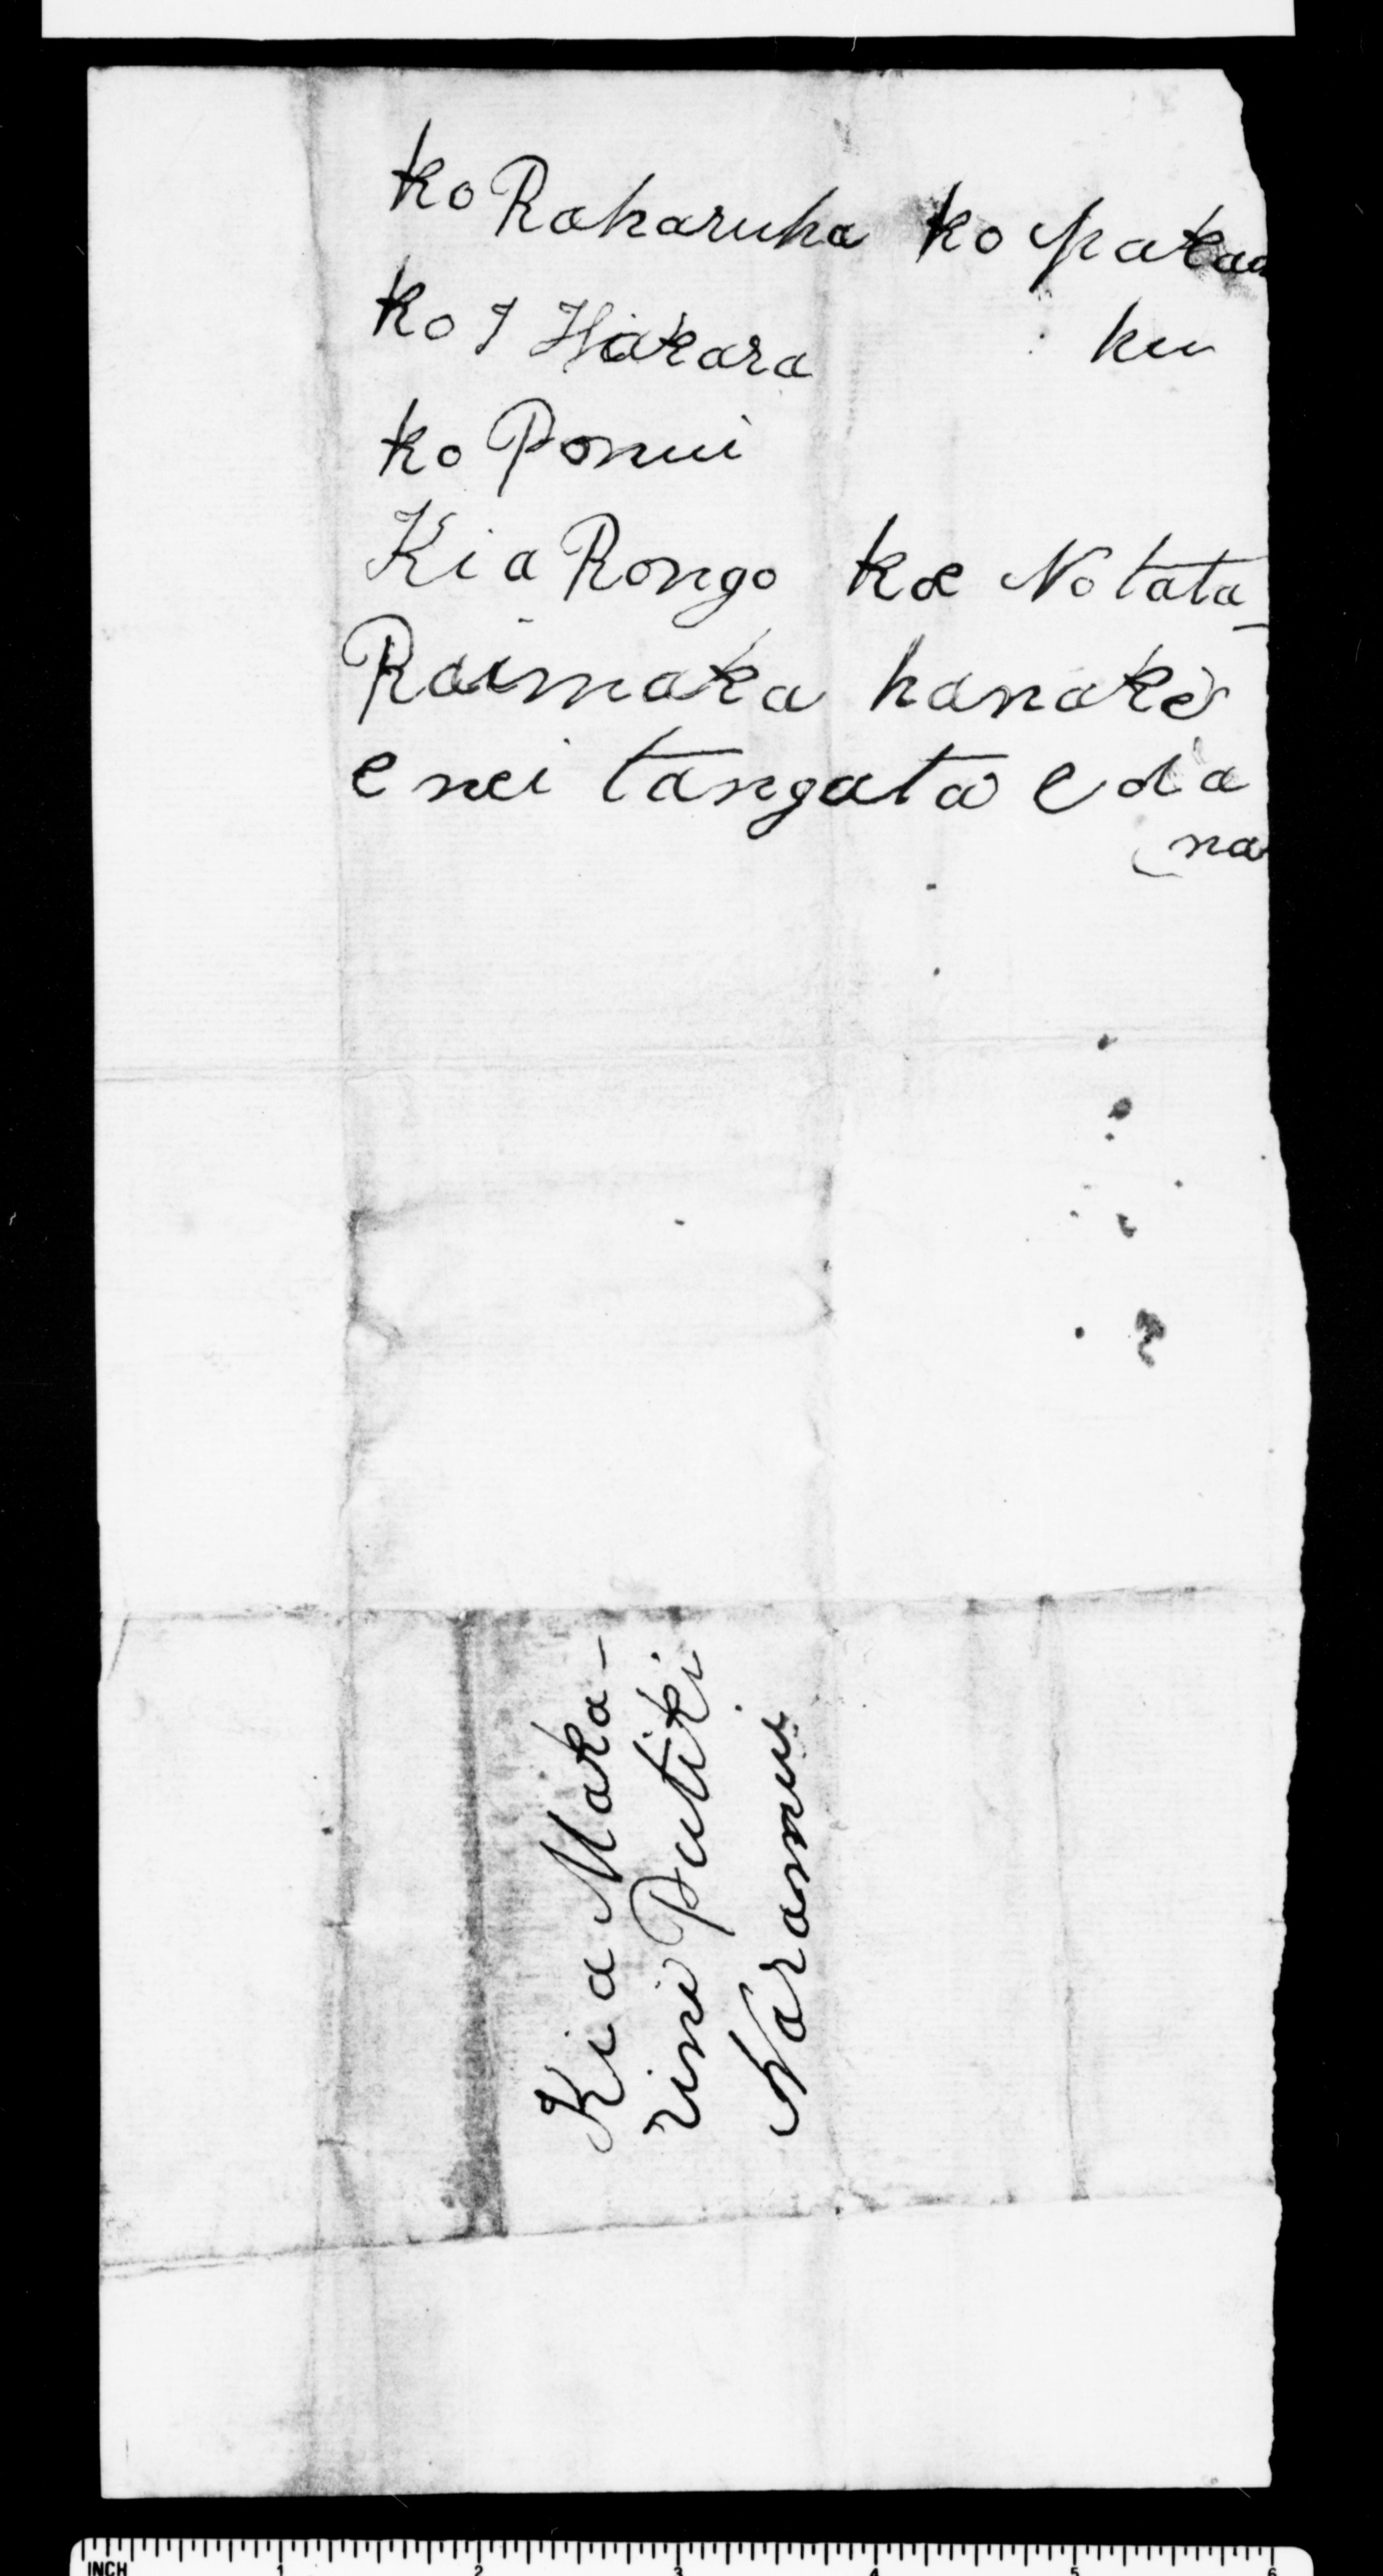 ko Raharuha ko pakau
ko I Hakara ku
ko Ponui
Kia Rongo koe No tata
Raimaka hanake
e nei tangata e da
na
Kia Maka-
rini Putiki
Naranui
INCH 1 2 3 4 5 6